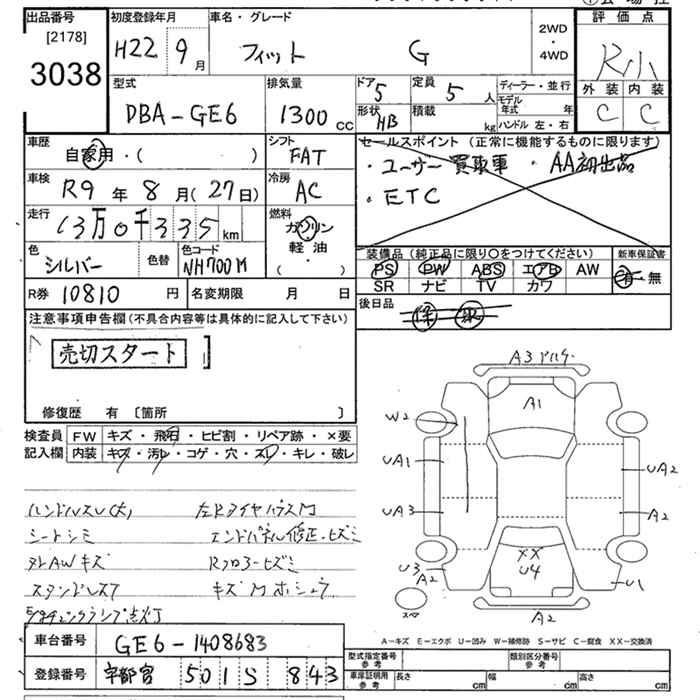 出品番号 初度登録年月 車名・グレード 評価点
[2178] H22 9月 フィット G 2WD・4WD R小
3038
型式 排気量 ドア 5 定員 5人 ディーラー・並行 外装 内装
DBA-GE6 1300cc 形状 HB 積載 kg モデル年式 年 C C
ハンドル 左・右
車歴 シフト セールスポイント (正常に機能するものに限ります)
自家用・( ) FAT ・ユーザー買取車 ・AA初出品
車検 冷房 ・ETC
R9年8月(27日) AC
走行 燃料
13万0千335km ガソリン
軽油
( )
色 色替 色コード 装備品(純正品に限り○をつけてください) 新車保証書
シルバー NH700M PS PW ABS エアB AW 有・無
SR ナビ TV カワ
R券 10810円 名変期限 月 日 後日品
注意事項申告欄(不具合内容等は具体的に記入して下さい)
売切スタート
修復歴 有 〔箇所 〕
検査員 FW キズ・飛石・ヒビ割・リペア跡・×要
記入欄 内装 キズ・汚レ・コゲ・穴・スレ・キレ・破レ
A1
W2
UA1 UA2
UA3 A2
XX
U4
U3 A2 U1
スペア A2
シートシミ エンドパネル修正・ヒズミ
Rフロアーヒズミ
A-キズ E-エクボ U-凹み W-補修跡 S-サビ C-腐食 XX-交換済
車台番号 GE6-1408683
登録番号 宇都宮 501 S 843
型式指定番号 参考 類別区分番号 参考
車庫証明用 参考 長さ cm 幅 cm 高さ cm